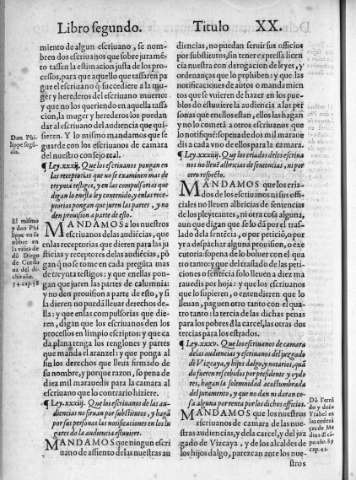 Libro segundo.
Titulo XX.
miento de algun escriuano, se nom-
bren dos escriuanos que sobre juramẽ-
to tassen la estimacion justa de los pro-
cessos, para que aquello que tassaren pa
gue el escriuano q̃ succediere a la mu-
ger y herederos del escriuano muerto
y que no los queriendo en aquella tassa
cion, la muger y herederos los puedan
dar al escriuano del audiencia que qui-
sieren. Y lo mismo mandamos que se
guarde con los escriuanos de camara
del nuestro consejo real.
Don Phi-
lippe segũ-
do.
¶ Ley.xxxij. Que los escriuanos pongan en
las receptorias que no se examinen mas de
treynta testigos, y en las compulsorias que
digan lo en esta ley contenido, y en las rece-
ptorias pongan que juren las partes, y no
den prouision a parte de esto.
El mismo
y don Phi
lippe en
MANDAMOS a los nuestros
escriuanos de las audiẽcias, que
en las receptorias que dieren para las ju
sticias y receptores de las audiẽcias, põ
gan q̃ no se tome en cada pregũta mas
de treynta testigos: y que en ellas pon-
gan juren las partes de calumnia:
y no den prouision a parte de esto, y si
la dieren no puedan lleuar derechos de-
lla: y que en las compulsorias que die-
ren, digan que los escriuanos den los
processos en limpio escriptos y que ca
da plana tenga los renglones y partes
que manda el aranzel y que ponga al
fin los derechos que lleua firmado de
su nombre, y porque razon, so pena de
diez mil marauedis para la camara al
escriuano que lo contrario hiziere.
¶ Ley.xxxiij. Que los escriuanos de las au-
diencias no siruan por substitutos, y hagã
por sus personas las notificaciones en los lu
gares do la audiencia estuuiere.
MANDAMOS que ningun escri
uano de asiento de las nuestras au
diencias, no puedan seruir sus officios
por substitutos, sin tener expressa licen
cia nuestra con derogacion de leyes, y
ordenanças que lo prohiben: y que las
notificaciones de autos o mandamien
tos que se vuieren de hazer en los pue-
blos do estuuiere la audiencia a las per
sonas que en ellos estan, ellos las hagan
y no lo cometa a otros escriuanos: que
lo notifiquẽ so pena de dos mil maraue
dis a cada vno dellos para la camara.
¶ Ley.xxxiiij. Que los criados de los escriua
nos no lleuen albricias de sentencias, ni por
otro respecto.
MANDAMOS que los cria-
dos de los escriuanos ni sus offi-
ciales no lleuen albricias de sentencias
de los pleyteantes, ni otra cosa alguna,
aun que digan que se lo dã por el tras-
lado de la sentẽcia, o por peticiõ, o por
yr a despachar alguna prouision, o exe
cutoria so pena de lo boluer con el qua
tro tanto y que del traslado de las peti-
ciones o sentẽcia solo lleuen a diez ma
rauedis por hoja: y que los escriuanos
que lo supieren, o entendieren que lo
lleuan, paguen otro tanto con el qua-
tro tanto: la tercia de las dichas penas
para los pobres del la carcel, las otras dos
tercias para los estrados.
¶ Ley.xxxv. Que los escriuanos de camara
de las audiencias y escriuanos del juzgado
de Vizcaya, y hijos dalgo, y notarios, quã
do fueren rescebidos por el presidente y oydo
res, hagan la solemnidad acostumbrada
del juramento, y que no dan ni daran co-
sa alguna por renta por los dichos officios.
MANDAMOS que los nuestros
escriuanos de camara de las nue-
stras audiencias, y de la carcel, y del juz
gado de Vizcaya, y de los alcaldes de
los hijos dalgo, parezcan ante los nue-
stros